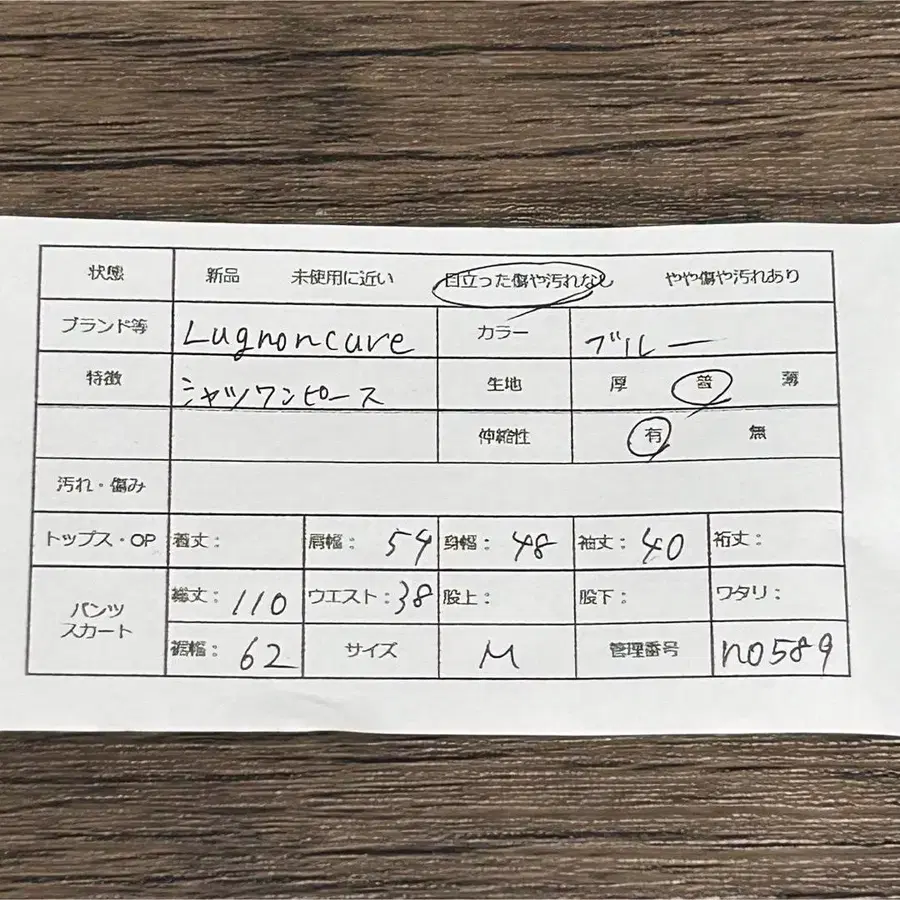 状態 新品 未使用に近い 目立った傷や汚れなし やや傷や汚れあり
ブランド等 Lugnoncure カラー ブルー
特徴 シャツワンピース 生地 厚 普 薄
伸縮性 有 無
汚れ・傷み
トップス・OP 着丈： 肩幅： 54 身幅： 48 袖丈： 40 裄丈：
パンツ スカート 総丈： 110 ウエスト： 38 股上： 股下： ワタリ：
裾幅： 62 サイズ M 管理番号 n0589